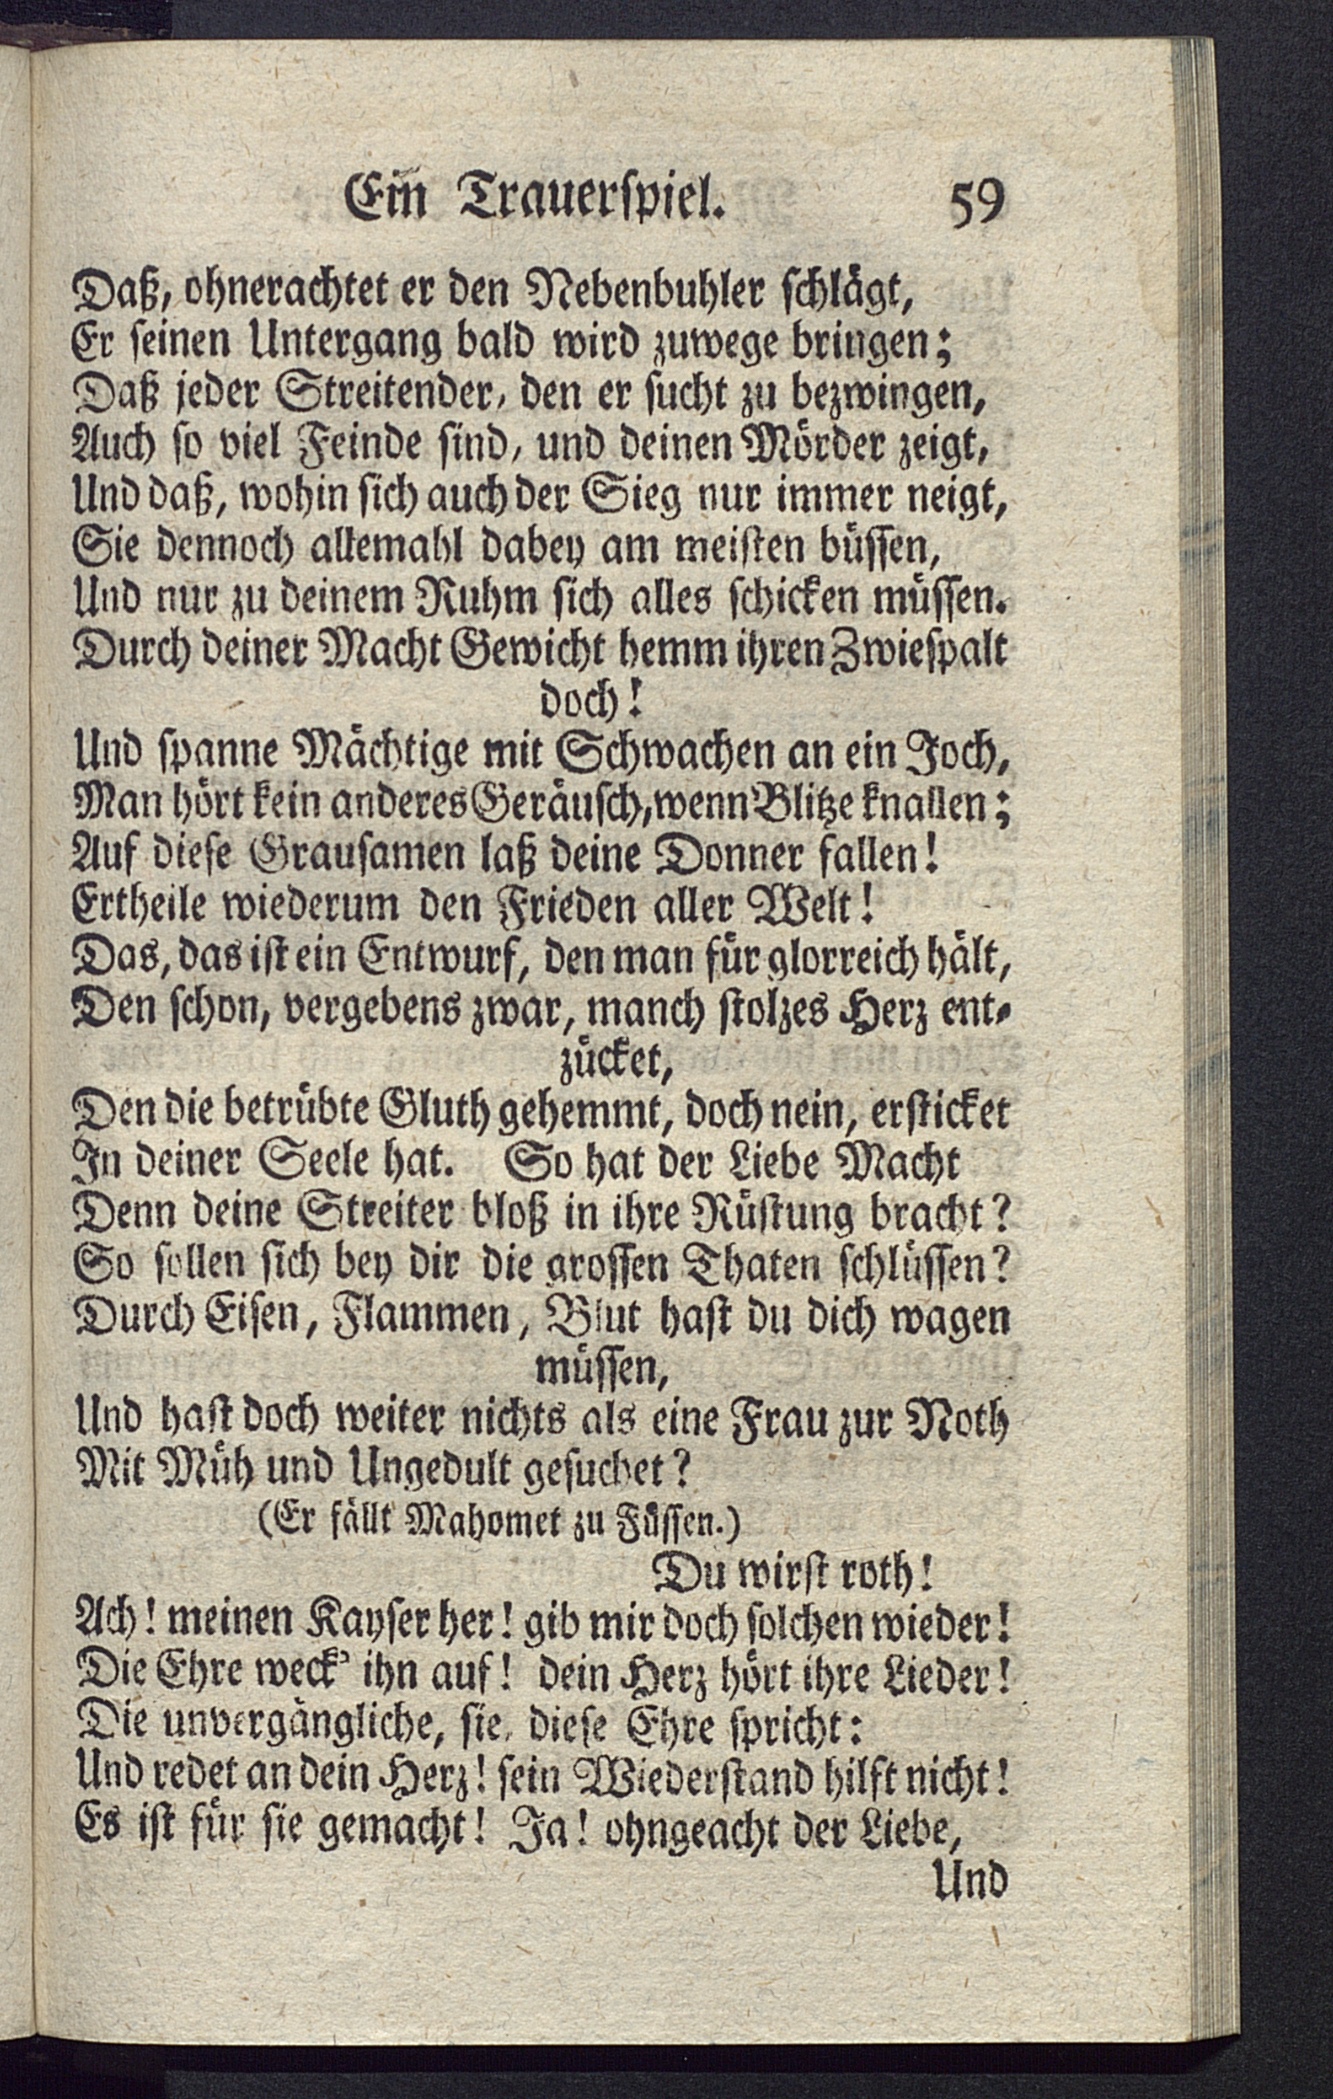 Ein Trauerspiel. 59
Daß, ohnerachtet er den Nebenbuhler schlägt,
Er seinen Untergang bald wird zuwege bringen;
Daß jeder Streitender, den er sucht zu bezwingen,
Auch so viel Feinde sind, und deinen Mörder zeigt,
Und daß, wohin sich auch der Sieg nur immer neigt,
Sie dennoch allemahl dabey am meisten büssen,
Und nur zu deinem Ruhm sich alles schicken müssen.
Durch deiner Macht Gewicht hemm ihren Zwiespalt
doch!
Und spanne Mächtige mit Schwachen an ein Joch,
Man hört kein anderes Geräusch, wenn Blitze knallen;
Auf diese Grausamen laß deine Donner fallen!
Ertheile wiederum den Frieden aller Welt!
Das, das ist ein Entwurf, den man für glorreich hält,
Den schon, vergebens zwar, manch stolzes Herz ent-
zücket,
Den die betrübte Gluth gehemmt, doch nein, ersticket
In deiner Seele hat. So hat der Liebe Macht
Denn deine Streiter bloß in ihre Rüstung bracht?
So sollen sich bey dir die grossen Thaten schlüssen?
Durch Eisen, Flammen, Blut hast du dich wagen
müssen,
Und hast doch weiter nichts als eine Frau zur Noth
Mit Müh und Ungedult gesuchet?
(Er fällt Mahomet zu Füssen.)
Du wirst roth!
Ach! meinen Kayser her! gib mir doch solchen wieder!
Die Ehre weck' ihn auf! dein Herz hört ihre Lieder!
Die unvergängliche, sie, diese Ehre spricht:
Und redet an dein Herz! sein Wiederstand hilft nicht!
Es ist für sie gemacht! Ja! ohngeacht der Liebe,
Und